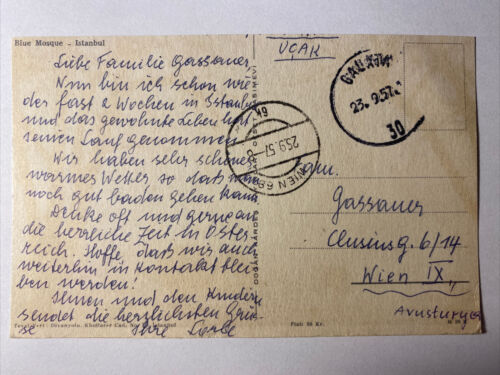 Blue Mosque - Istanbul
Liebe Familie Gassauer
Nun bin ich schon wie
der fast 2 Wochen in Istanbul
und das gewohnte Leben hat
seinen Lauf genommen
Wir haben sehr schönes
warmes Wetter so dass man
noch gut baden gehen kann.
Denke oft und gerne an
die herrliche Zeit in Öster-
reich. Hoffe, dass wir auch
weiterhin in Kontakt blei
ben werden!
Ihnen und den Kindern
sendet die herzlichsten Grüs-
se Ihre
UÇAK
GALATA
23.9.57
30
25.9.57
WIEN
DOĞAN KARDEŞ
BASIMEVİ
Fam.
Gassauer
Clusiusg. 6/14
Wien IX,
Avusturya
Fiatı 50 Kr.